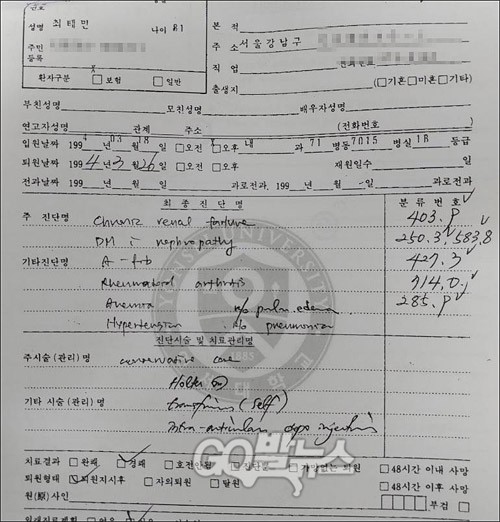 성명 최태민 나이 81
주민
등록
환자구분 □보험 □일반
본 적
주 소 서울강남구
직 업
출생지 (□기혼□미혼□기타)
부친성명 모친성명 배우자성명
연고자성명 관계 주소 (전화번호 )
입원날짜 1994년 03월 18일 □오전 □오후 내 과 71 병동 7015 병실 1B 등급
퇴원날짜 1994년 3월 26일 □오전 □오후 재원일수 일
전과날짜 199 년 월 일 과로전과. 199 년 월 일 과로전과
최종진단명 분류번호
주 진단명 Chronic renal failure 403.P
DM c nephropathy 250.3, 583.8
기타진단명 A-fib 427.3
Rheumatoid arthritis 714.0
Anemia r/o pulm. edema 285.P
Hypertension r/o pneumonia
진단시술 및 치료관리명
주시술(관리)명 conservative care
Holter
기타 시술(관리)명 transfusion (self)
Intra-articular injection
GO발뉴스
YONSEI UNIVERSITY
1885
치료결과 □완쾌 □경쾌 □호전안됨 □진단뿐 □가망없는 퇴원 □48시간 이내 사망
퇴원형태 □퇴원지시후 □자의퇴원 □탈원 □48시간 이후 사망
원(原)사인 부검